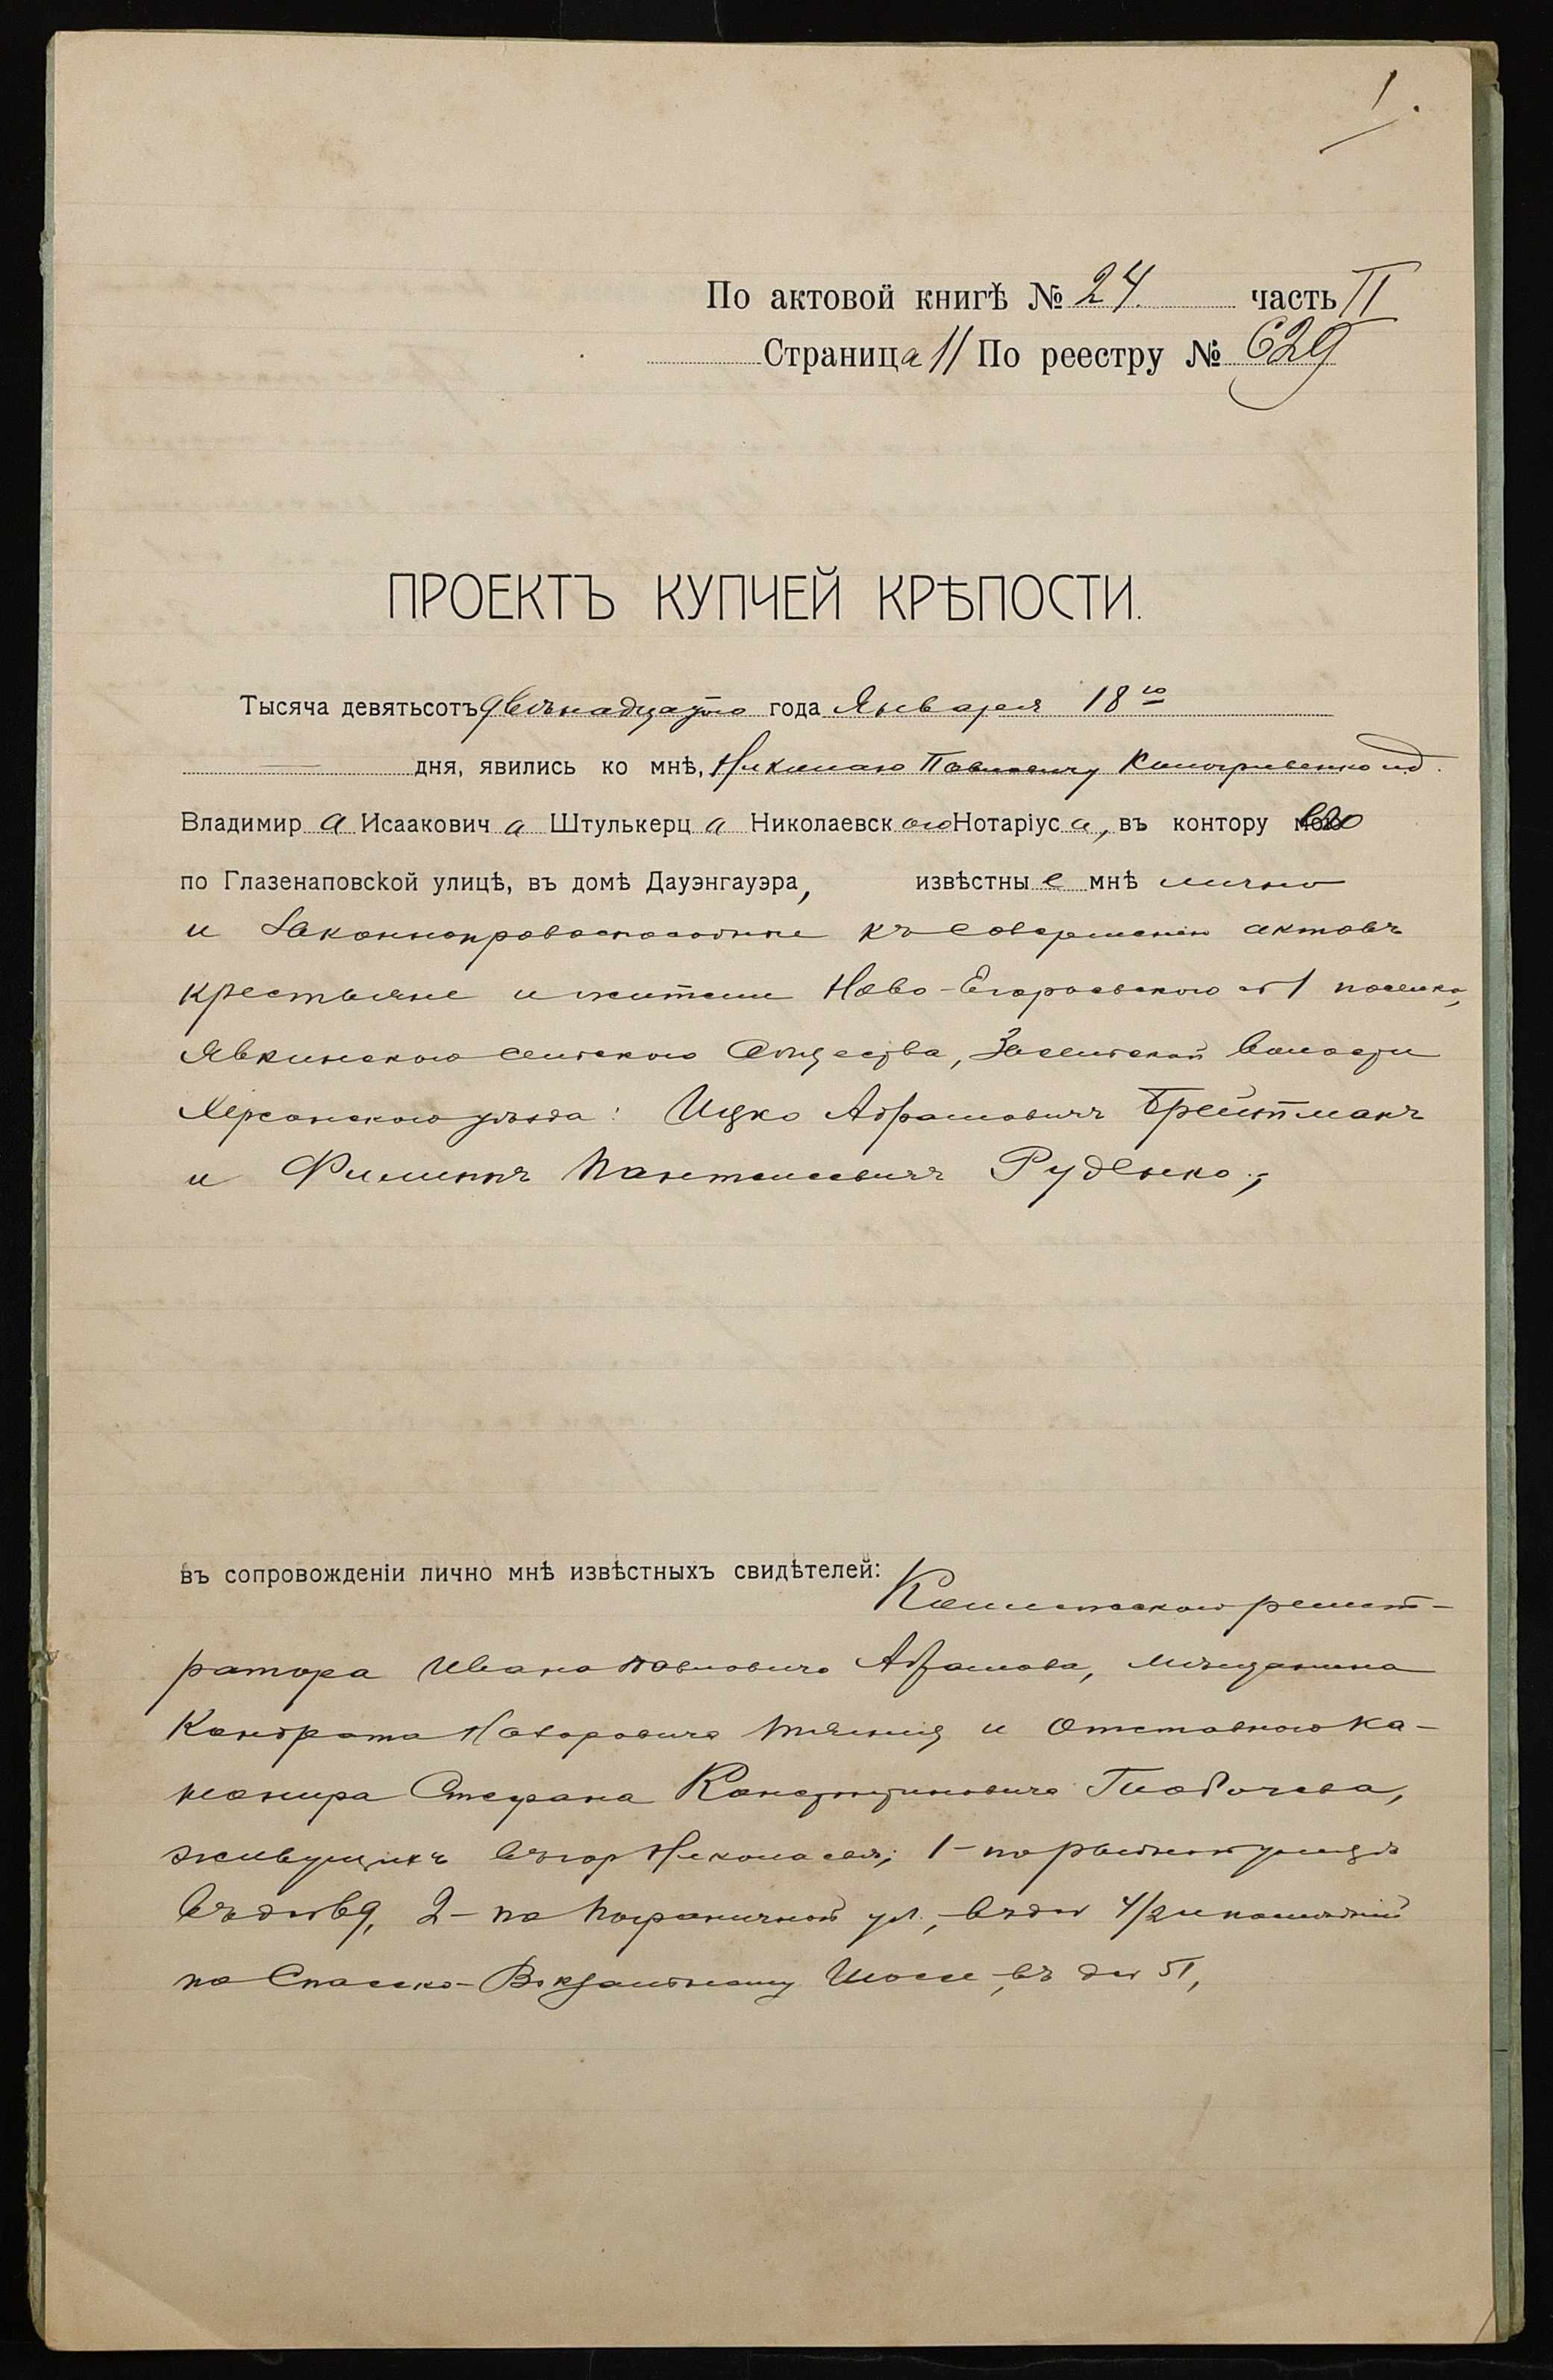 1.
По актовой книгѣ № 24. часть II
Страница 11 По реестру № 629
ПРОЕКТЪ КУПЧЕЙ КРѢПОСТИ.
Тысяча девятьсотъ двѣнадцатаго года Января 18го
дня, явились ко мнѣ, Николаю Павловичу
Владимира Исааковича Штулькерца Николаевскаго Нотаріуса, въ контору его
по Глазенаповской улицѣ, въ домѣ Дауэнгауэра, извѣстные мнѣ лично
и законноправоспособные къ совершенію актовъ
крестьяне и жители Ново-Егоровского № 1 поселка,
Явкинского сельского Общества, Засельской волости
Херсонского уѣзда: Ицко Абрамовичъ Брейтманъ
и Филиппъ Пантелеевичъ Руденко,
въ сопровожденіи лично мнѣ извѣстныхъ свидѣтелей:
Коллежского регист-
ратора Ивана Павловича Абрамова, мѣщанина
Кондрата и Отставного ка-
нонира Стефана Константиновича
живущихъ въ гор Николаевѣ, 1-по улицѣ
въ д № 2-по Пограничной ул., въ д № 4/2 и послѣдній
по Спасско-Вокзальному Шоссе, въ д № 51,